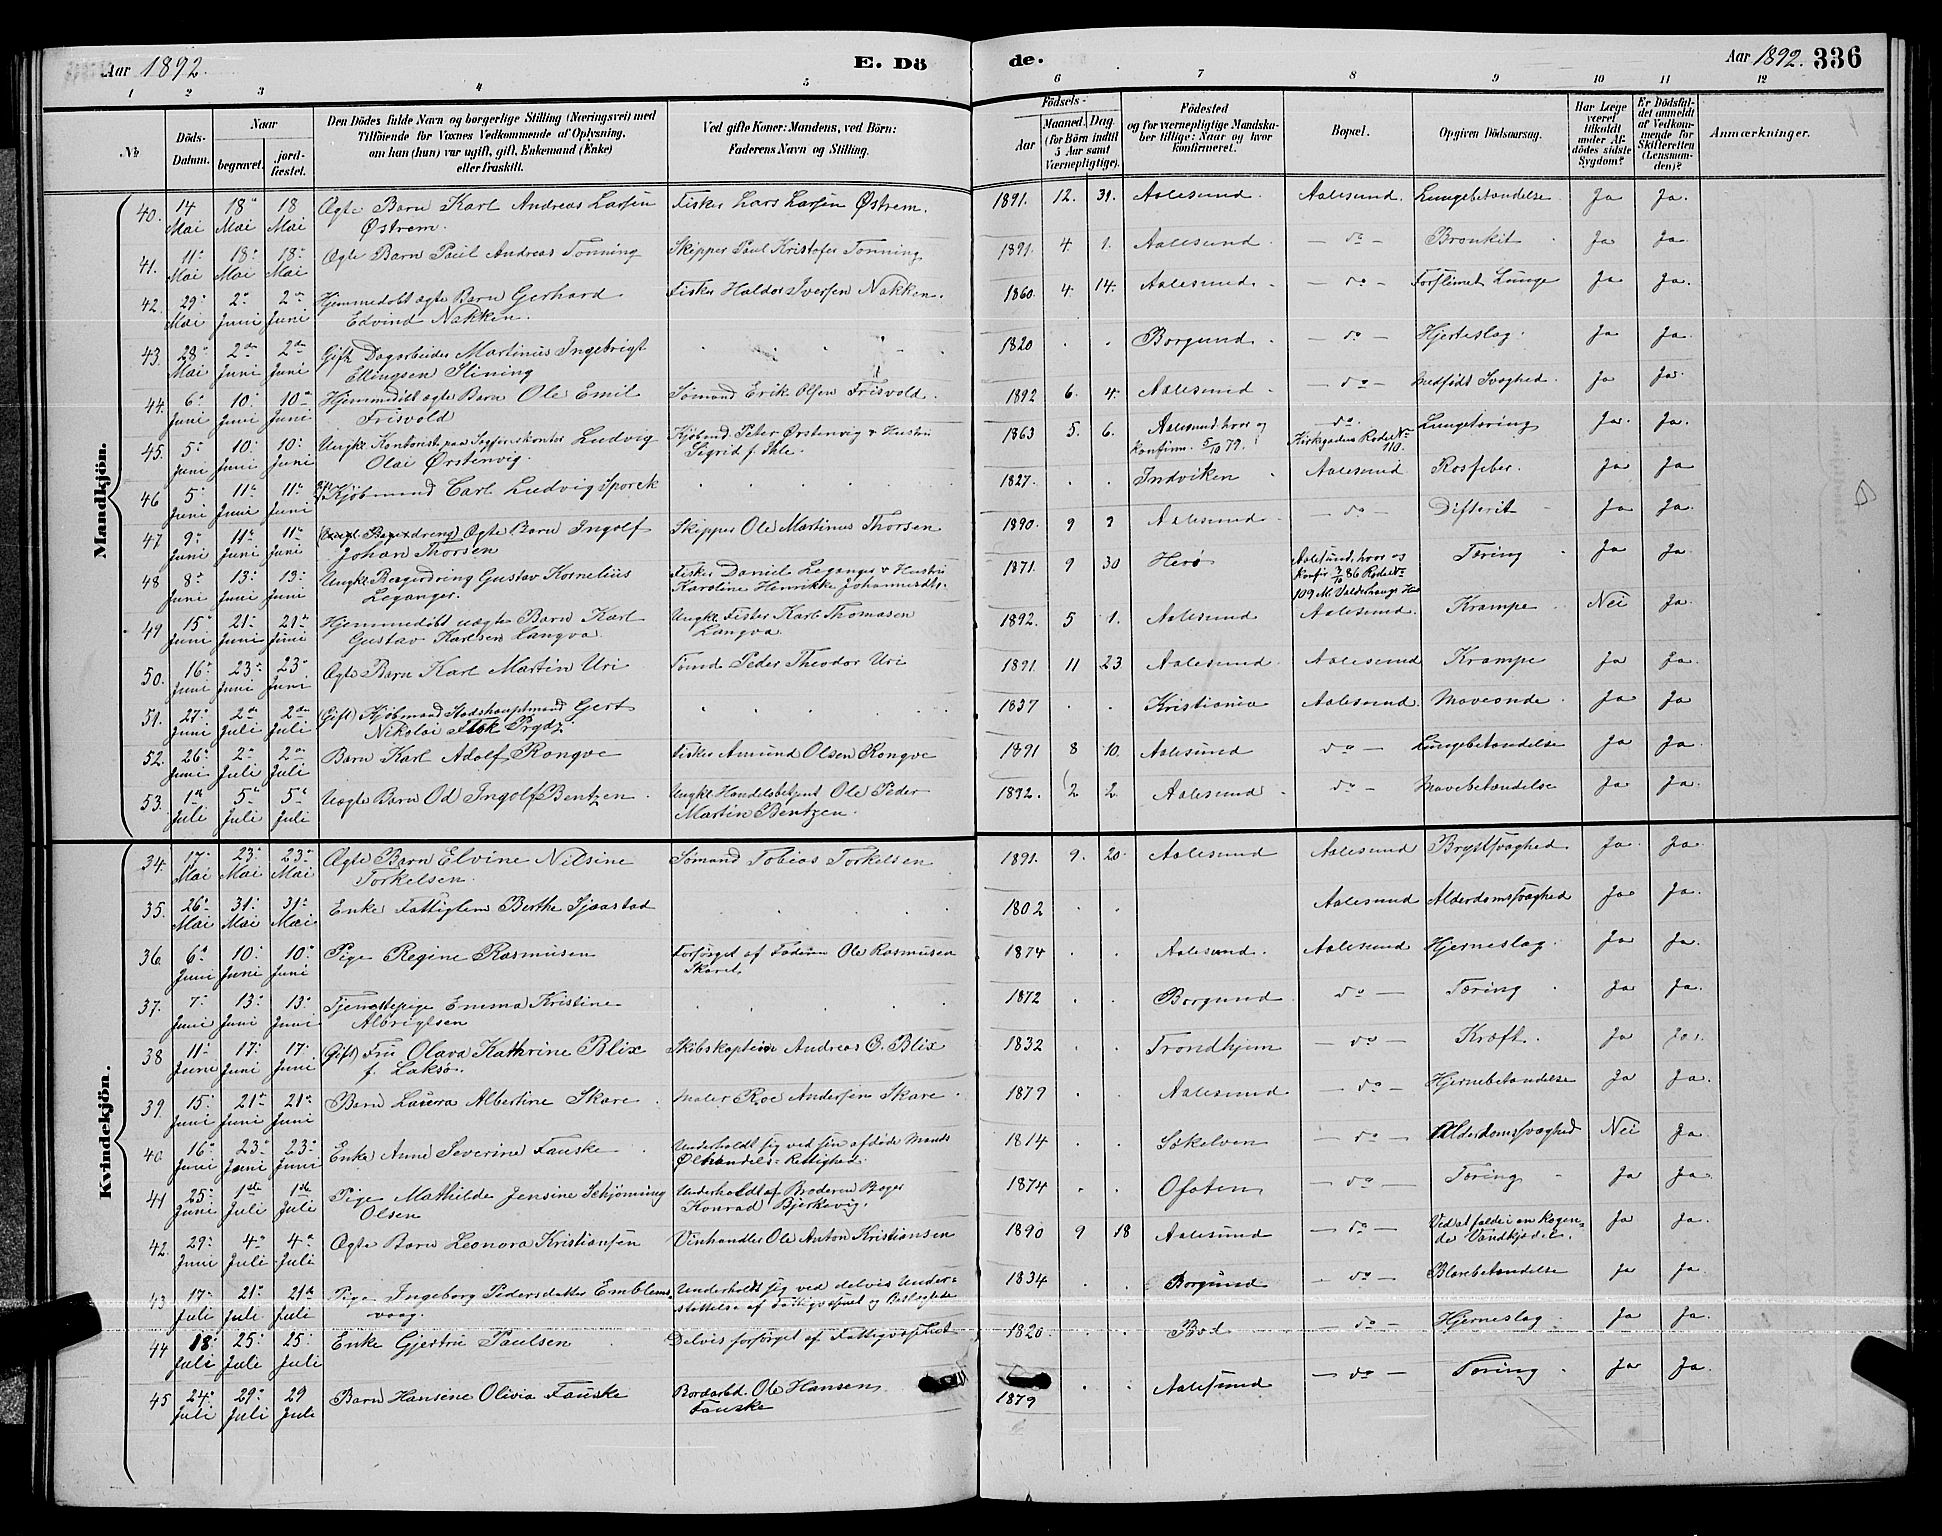 Aar 1892. E. Dö de. Aar 1892. 336
1 2 3 4 5 6 7 8 9 10 11 12
№ Döds-Datum. Naar begravet. jordfæstet. Den Dödes fulde Navn og borgerlige Stilling (Næringsvei) med Tilföiende for Voxnes Vedkommende af Oplysning, om han (hun) var ugift, gift, Enkemand (Enke) eller fraskilt. Ved gifte Koner: Mandens, ved Börn: Faderens Navn og Stilling. Födsels- Aar Maaned. Dag. (for Börn indtil 5 Aar samt Værnepligtige). Födested og for værnepligtige Mandskaber tillige: Naar og hvor konfirmeret. Bopæl. Opgiven Dödsaarsag. Har Læge været tilkaldt under Afdödes sidste Sygdom? Er Dödsfaldet anmeldt af Vedkommende for Skifteretten (Lensmanden)? Anmærkninger.
Mandkjön.
40. 14 Mai 18 Mai 18 Mai Ægte Barn Karl Andreas Larsen Østrem. Fisker Lars Larsen Østrem. 1891. 12. 31. Aalesund. Aalesund. Lungebetændelse. Ja Ja.
41. 11 Mai 18 Mai 18 Mai Ægte Barn Paul Andreas Tonning Skipper Paul Kristofer Tonning 1891. 4. 1. Aalesund. — do — Bronkit Ja Ja.
42. 29 Mai 2 Juni 2 Juni Hjemmedøbt ægte Barn Gerhard Edvind Nakken. Fisker Haldor Iversen Nakken. 1860. 4. 14. Aalesund. — do — Forslimet Lunge Ja Ja.
43. 28 Mai 2den Juni 2den Juni Gift Dagarbeider Martinus Ingebrigt Ellingsen Slining 1820 Borgund. — do — Hjerteslag. Ja Ja.
44. 6 Juni 10 Juni 10 Juni Hjemmedøbt ægte Barn Ole Emil Frisvold Sømand Erik Olsen Frisvold. 1892 6. 4. Aalesund — do — medfødt Svaghed. Ja Ja.
45. 5 Juni 10 Juni 10 Juni Ungkr. Kontorist paa Sagførerkontor Ludvig Olai Ørstenvig. Kjøbmd. Peter Ørstenvig & Hustru Sigrid f. Ihle. 1863 5. 6. Aalesund hvor og konfirm. 5/10 79. — do — Kirkegadens Rode No 110. Lungetæring Ja. Ja.
46 5 Juni 11 Juni 11 Juni Kjøbmand Carl Ludvig Sporck 1827. Indviken Aalesund Rosfeber. Ja Ja
47 9 Juni 11 Juni 11 Juni Ægte Barn Ingolf Johan Thorsen Skipper Ole Martinus Thorsen 1890. 9 9 Aalesund — do — Difterit Ja Ja
48 8 Juni 13 Juni 13 Juni Ungkr. Bagerdreng Gustav Kornelius Leganger. Fisker Daniel Leganger & Hustru Karoline Henrikke Johannesdtr. 1871. 9 30 Herø Aalesund, hvor og konfir 3/10 86 Rode No 109 M. Valderhaugs Hus Tæring Ja Ja
49 15 Juni 21 Juni 21 Juni Hjemmedøbt uægte Barn Karl Gustav Karlsen Langva. Ungkr. Fisker Karl Thomasen Langva. 1892. 5 1. Aalesund Aalesund. Krampe Nei Ja.
50. 16 Juni 23 Juni 23 Juni Ægte Barn Karl Martin Uri Sømd Peder Theodor Uri 1891. 11 23 Aalesund. Aalesund Krampe Ja Ja.
51. 27 Juni 2den Juli 2den Juli (Gift) Kjøbmand Stadshauptmand Gert Nikolai Prydz 1837 Kristiania Aalesund. Maveonde Ja Ja.
52. 26 Juni 2 Juli 2 Juli Barn Karl Adolf Rongve Fisker Amund Olsen Rongve 1891 8 10. Aalesund do — Lungebetændelse Ja Ja.
53. 1 Juli 5 Juli 5 Juli Uægte Barn Od Ingolf Bentzen. Ungkr Handelsbetjent Ole Peder Martin Bentzen. 1892. 2 2. Aalesund do — Mavebetændelse Ja Ja.
Kvindekjön.
34. 17 Mai 23 Mai 23 Mai Ægte Barn Elvine Nilsine Torkelsen. Sømand Tobias Torkelsen 1891. 9. 20. Aalesund Aalesund Brystsvaghed. Ja. Ja.
35. 26 Mai 31 Mai 31 Mai Enke Fattiglem Berthe Sjaastad 1802 Aalesund Alderdomssvaghed Ja Ja.
36 6 Juni 10 Juni 10 Juni Pige Regine Rasmusen Forsørget af Faderen Ole Rasmusen Skaret. 1874 Aalesund. Aalesund Hjerneslag. Ja Ja.
37. 7 Juni 13 Juni 13 Juni Tjenestepige Emma Kristine Albrigtsen 1872 Borgund. do — Tæring Ja Ja.
38 11 Juni 17 Juni 17 Juni (Gift) Fru Olava Kathrine Blix f. Laksø. Skibskaptein Andreas C. Blix 1832 Trondhjem — do — Kræft. Ja Ja.
39. 15 Juni 21 Juni 21 Juni Barn Laura Albertine Skare. Maler Roe Andersen Skare. 1879 Aalesund — do — Hjernebetændelse Ja Ja.
40 16 Juni 23 Juni 23 Juni Enke Anne Severine Fauske. Underholdt sig ved sin afdøde Mands Ølhandels-Rettighed. 1814 Søkelven — do — Alderdomssvaghed Nei Ja.
41 25 Juni 1ste Juli 1ste Juli Pige Mathilde Jensine Schjønning Olsen Underholdt af Broderen Bager Konrad Bjerkevig. 1874 Ofoten — do — Tæring Ja Ja.
42. 29 Juni 4 Juli 4 Juli Ægte Barn Leonora Kristiansen Vinhandler Ole Anton Kristiansen 1890 9 18 Aalesund — do — Ved at falde i en kogende Vandkjedel. Ja Ja.
43 17 Juli 21 Juli 21 Juli Pige Ingeborg Pedersdatter Emblemsvaag Underholdt sig ved delvis Understøttelse af Fattigvæsnet og Beslægtede 1834 Borgund — do — Blærebetændelse Ja Ja.
44 18 Juli 25 Juli 25 Juli Enke Gjertru Paulsen. Delvis forsørget af Fattigvæsenet 1820 Bod — do — Hjerneslag Ja Ja.
45 24 Juli 29 Juli 29 Juli Barn Hansine Olivia Fauske Bordarbd. Ole Hansen Fauske 1879 Aalesund — do — Tæring. Ja Ja.